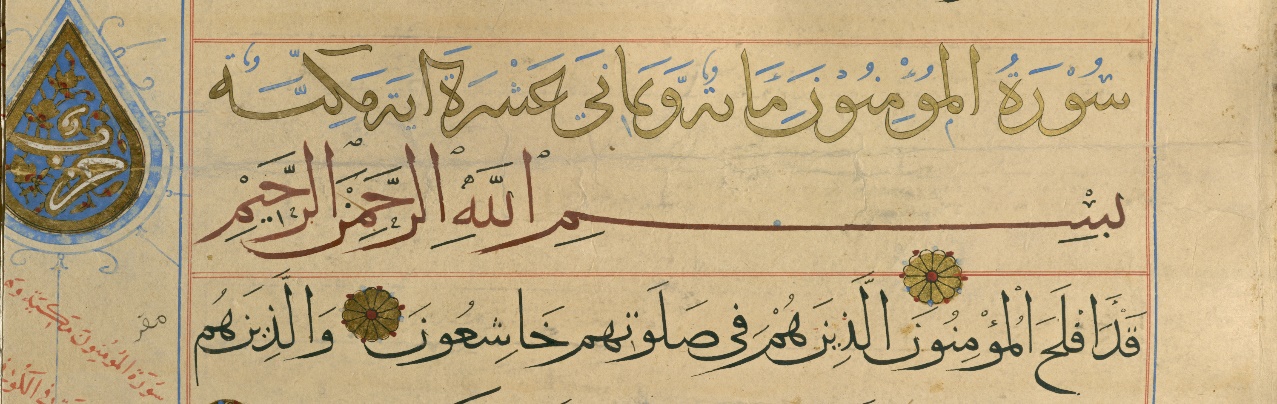 سُوْرَةُ الْمُؤْمِنُوْنَ مَائَةٌ وَثَمَانِيَ عَشْرَةَ اٰيَةً مَكِّيَّة
بِسْمِ اللّٰهِ الرَّحْمٰنِ الرَّحِيْمِ
قَدْ اَفْلَحَ الْمُؤْمِنُوْنَ الَّذِيْنَ هُمْ فِى صَلَوتِهِمْ خَاشِعُوْنَ وَالَّذِيْنَ هُمْ
حزب
سورة المؤمنون مكية